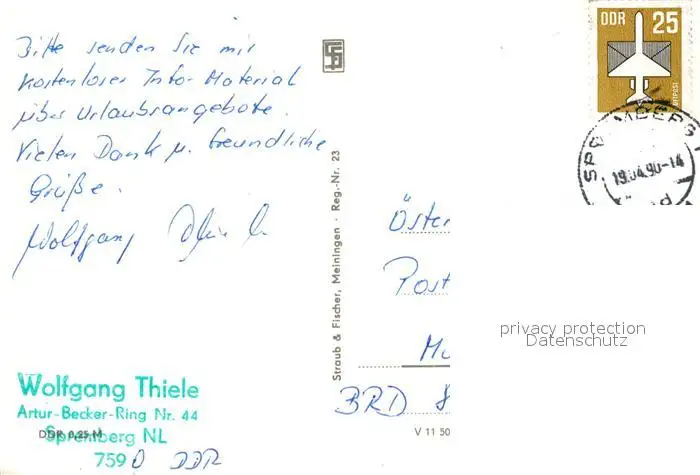 Bitte senden Sie mir
kostenloses Info-Material
über Urlaubsangebote.
Vielen Dank u. freundliche
Grüße.
Wolfgang Thiele
Wolfgang Thiele
Artur-Becker-Ring Nr. 44
DDR 0,25 M
Spremberg NL
7590 DDR
Straub & Fischer, Meiningen - Reg.-Nr. 23
DDR 25
LUFTPOST
SPREMBERG 1
19.04.90-14
Öster
Post
Mü
BRD 8
V 11 50
privacy protection
Datenschutz